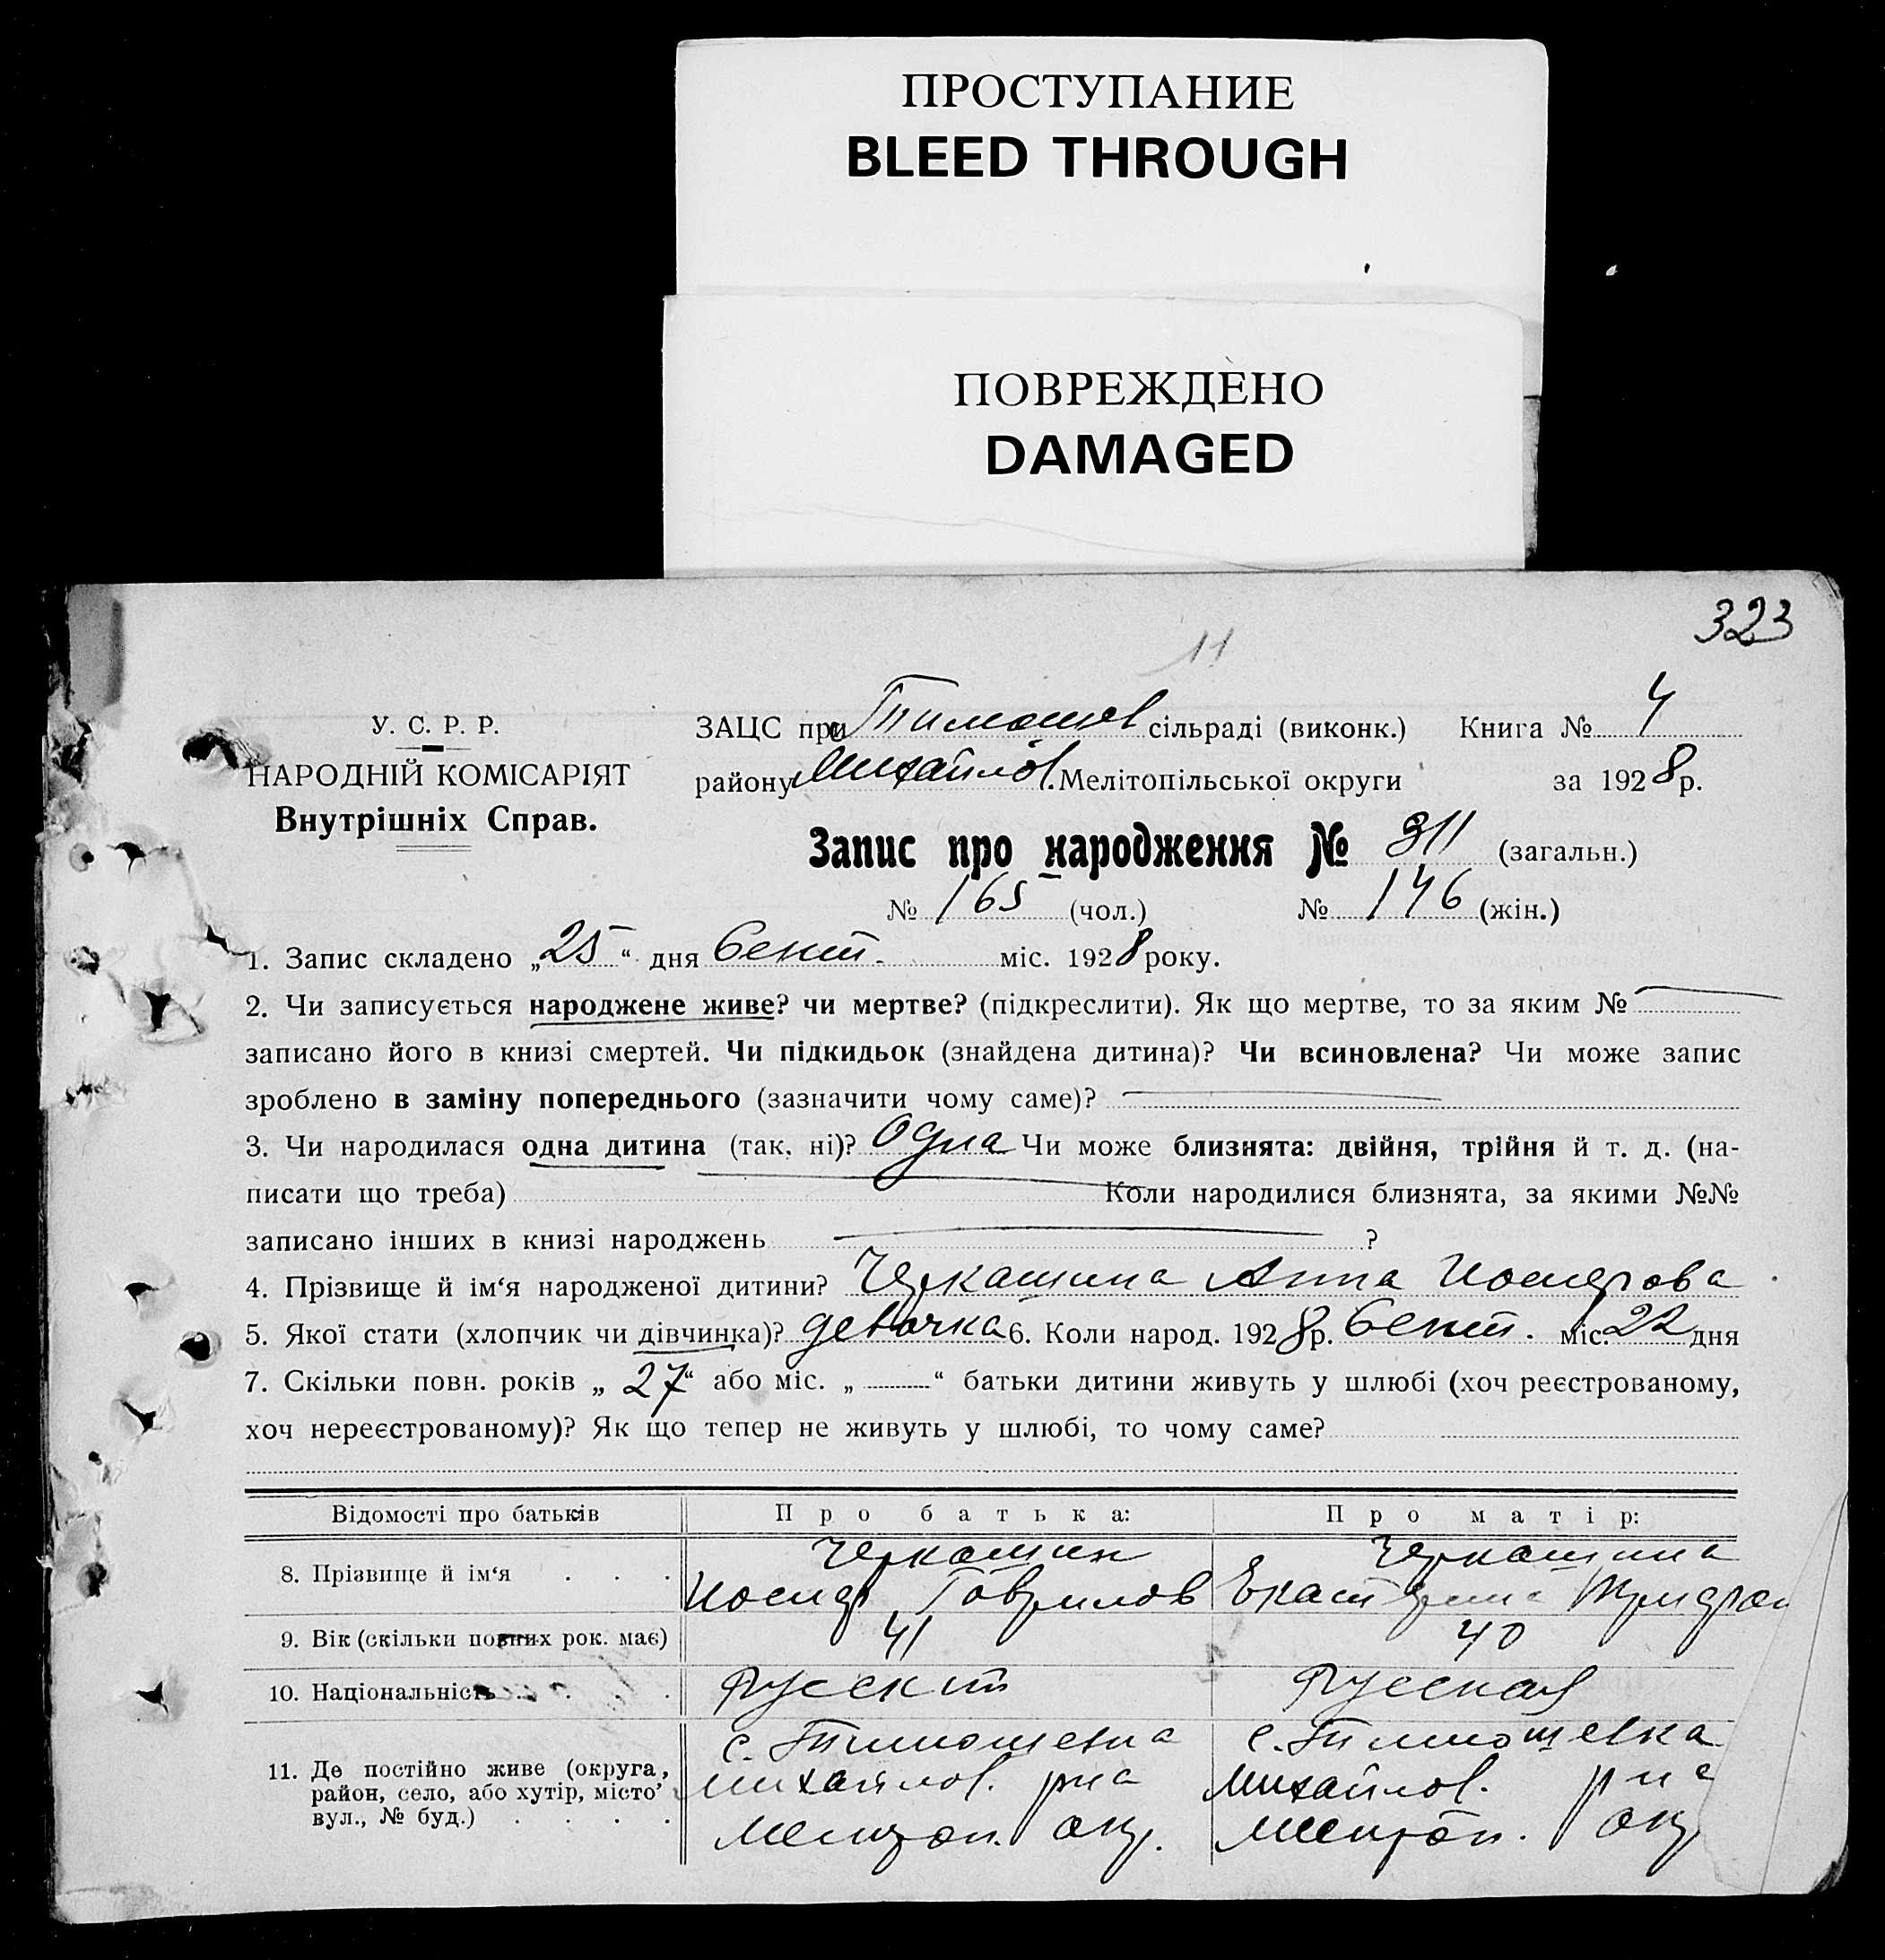 ПРОСТУПАНИЕ
BLEED THROUGH
ПОВРЕЖДЕНО
DAMAGED
323
11
У. С. Р. Р.
НАРОДНІЙ КОМІСАРІЯТ
Внутрішніх Справ.
ЗАЦС при с Тимошев сільраді (виконк.) Книга № 4
району Михайлов. Мелітопільської округи за 1928 р.
Запис про народження № 311 (загальн.)
№ 165 (чол.) № 146 (жін.)
1. Запис складено „25“ дня Сент. міс. 1928 року.
2. Чи записується народжене живе? чи мертве? (підкреслити). Як що мертве, то за яким №
записано його в книзі смертей. Чи підкидьок (знайдена дитина)? Чи всиновлена? Чи може запис
зроблено в заміну попереднього (зазначити чому саме)?
3. Чи народилася одна дитина (так, ні)? Одна Чи може близнята: двійня, трійня й т. д. (на-
писати що треба) Коли народилися близнята, за якими №№
записано інших в книзі народжень ?
4. Прізвище й ім‘я народженої дитини? Черкашина Анна Иосифова
5. Якої стати (хлопчик чи дівчинка)? девочка 6. Коли народ. 1928 р. Сент. міс. 22 дня
7. Скільки повн. років „27“ або міс. „ “ батьки дитини живуть у шлюбі (хоч реєстрованому,
хоч нереєстрованому)? Як що тепер не живуть у шлюбі, то чому саме?
Відомості про батьків Про батька: Про матір:
8. Прізвище й ім‘я . . . Черкашин Черкашина
Иосиф Гаврилов Екатерина
9. Вік (скільки повних рок. має) 41 40
10. Національність . . . Русский Русская
11. Де постійно живе (округа, район, село, або хутір, місто, вул., № буд.) . . . .
с. Тимошевка с. Тимошевка
Михайлов. р-на Михайлов. р-на
Мелитоп. окр. Мелитоп. окр